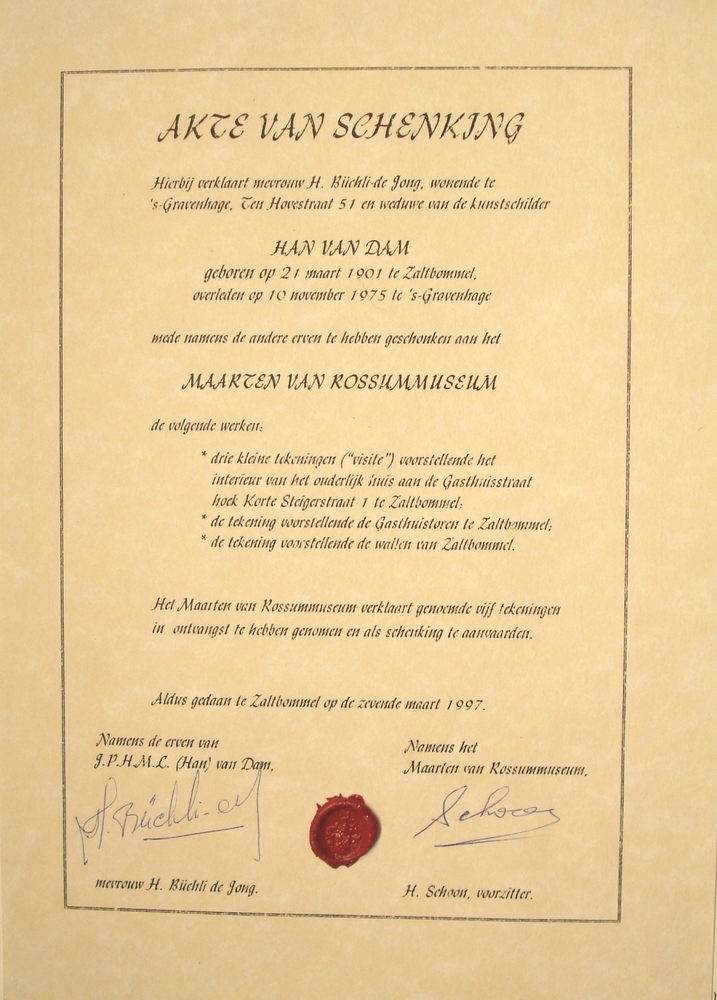 AKTE VAN SCHENKING
Hierbij verklaart mevrouw H. Büchli-de Jong, wonende te
's-Gravenhage, Ten Hovestraat 51 en weduwe van de kunstschilder
HAN VAN DAM
geboren op 21 maart 1901 te Zaltbommel,
overleden op 10 november 1975 te 's-Gravenhage
mede namens de andere erven te hebben geschonken aan het
MAARTEN VAN ROSSUMMUSEUM
de volgende werken:
* drie kleine tekeningen ("visite") voorstellende het
interieur van het ouderlijk huis aan de Gasthuisstraat
hoek Korte Steigerstraat 1 te Zaltbommel;
* de tekening voorstellende de Gasthuistoren te Zaltbommel;
* de tekening voorstellende de wallen van Zaltbommel.
Het Maarten van Rossummuseum verklaart genoemde vijf tekeningen
in ontvangst te hebben genomen en als schenking te aanvaarden.
Aldus gedaan te Zaltbommel op de zevende maart 1997.
Namens de erven van
J.P.H.M.L. (Han) van Dam,
H. Büchli-
mevrouw H. Büchli de Jong.
Namens het
Maarten van Rossummuseum,
H. Schoon, voorzitter.